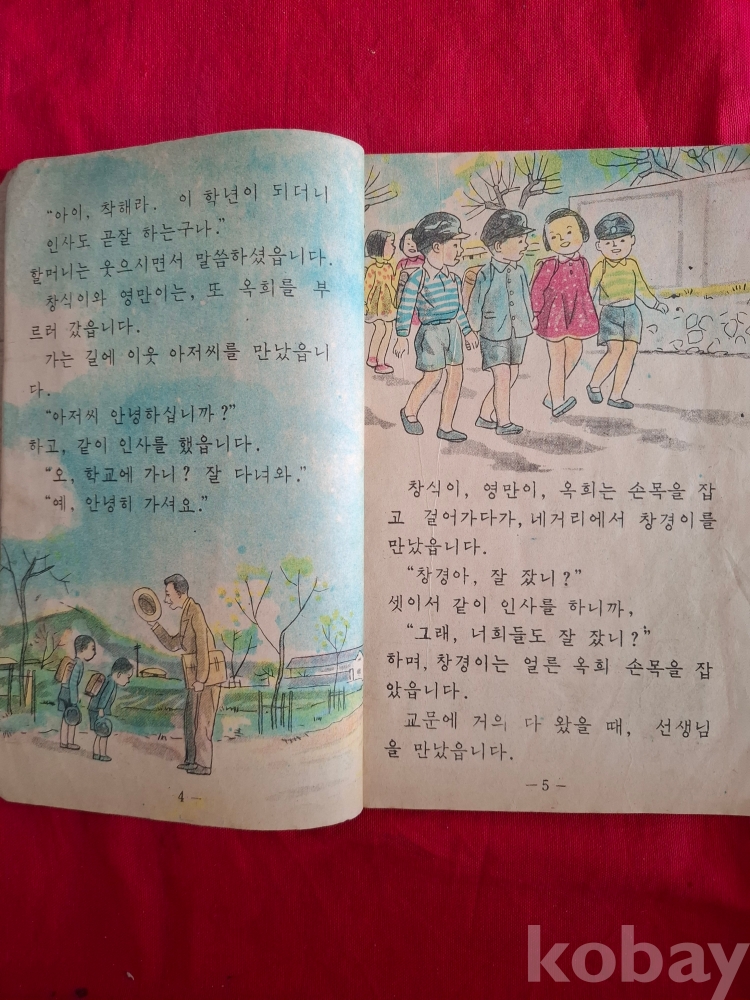 "아이, 착해라. 이 학년이 되더니
인사도 곧잘 하는구나."
할머니는 웃으시면서 말씀하셨읍니다.
창식이와 영만이는, 또 옥희를 부
르러 갔읍니다.
가는 길에 이웃 아저씨를 만났읍니
다.
"아저씨 안녕하십니까?"
하고, 같이 인사를 했읍니다.
"오, 학교에 가니? 잘 다녀와."
"예, 안녕히 가셔요."
4 —
창식이, 영만이, 옥희는 손목을 잡
고 걸어가다가, 네거리에서 창경이를
만났읍니다.
"창경아, 잘 잤니?"
셋이서 같이 인사를 하니까,
"그래, 너희들도 잘 잤니?"
하며, 창경이는 얼른 옥희 손목을 잡
았읍니다.
교문에 거의 다 왔을 때, 선생님
을 만났읍니다.
— 5 —
kobay